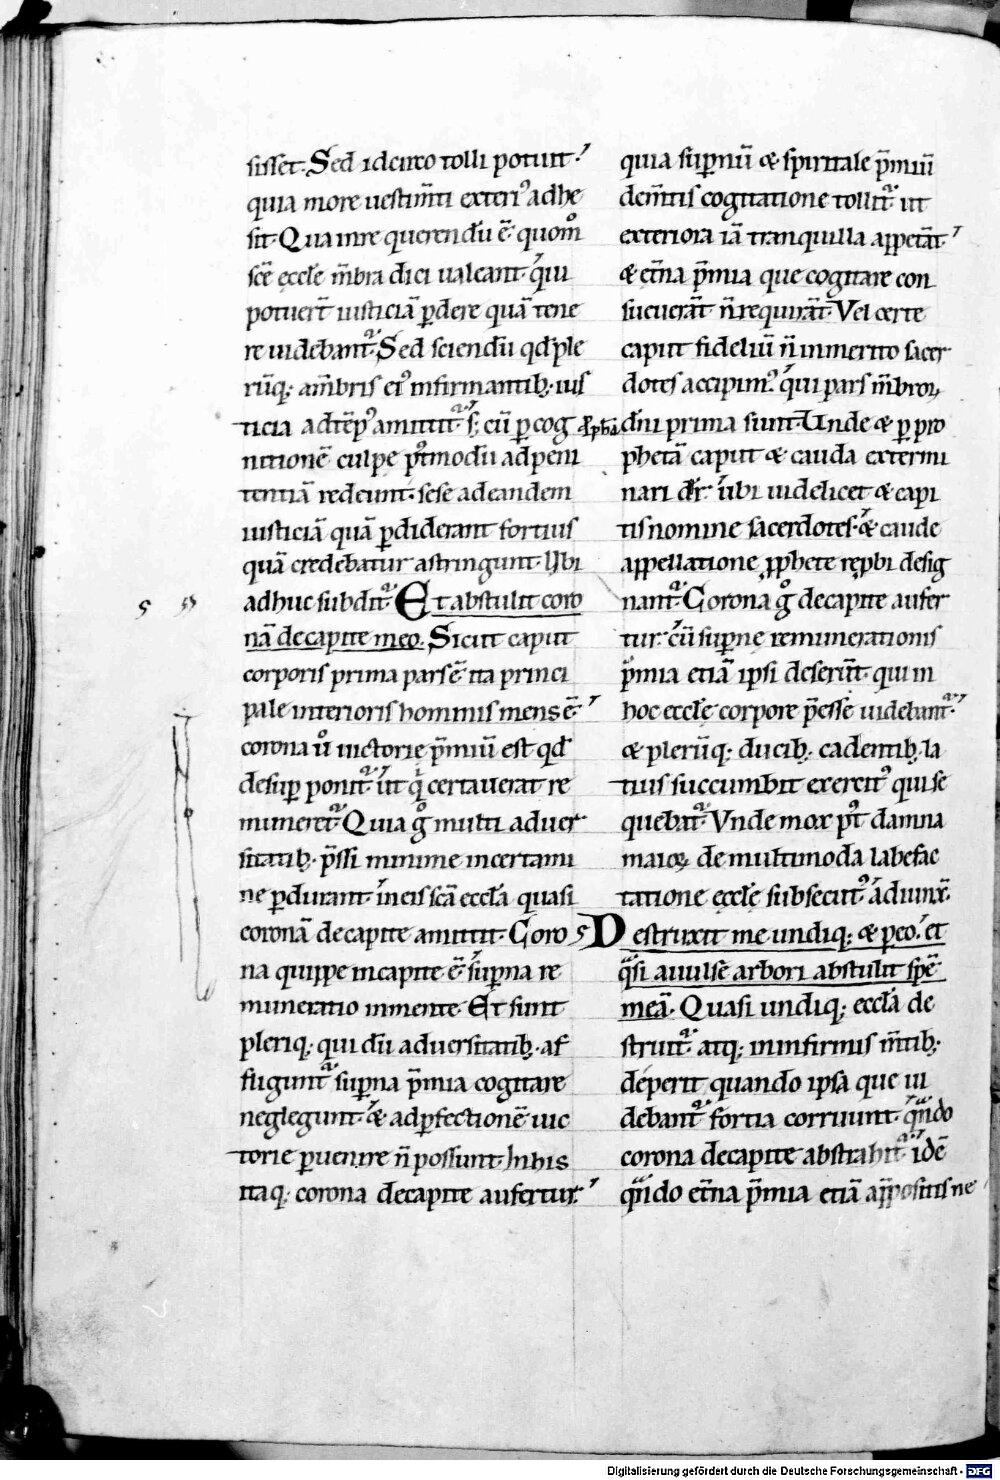 sisset. Sed idcirco tolli potuit.
quia more uestim̄ti exteri᷒ adhe
sit. Qua in re querendū ē. quom̊
scē eccl̄e m̄bra dici ualeant. qͥui
potuer̄t iusticiā ꝑdere quā tene
re uidebant᷑. Sed sciendū qđ ple
rūq; a m̄bris ei᷒ infirmantib; ius
ticia ad tēp᷒ amittit᷑. s; cū ꝑ cog
nitionē culpe pꝰtmodū ad peni
tentiā redeunt. sese ad eandem
iusticiā quā ꝑdiderant fortius
quā credebatur astringunt. Ubi
adhuc subdit᷑. Et abstulit coro
nā de capite meo. Sicut caput
corporis prima pars ē. ita princi
pale interioris hominis mens ē.
corona ů uictorie p̄miū est. qđ
desuꝑ ponit᷑. ut qͥ certauerat re
muneret᷑. Quia g̊ multi aduer
sitatib; p̄ssi minime in certami
ne ꝑdurant. in eis scā eccl̄a quasi
coronā de capite amittit. Coro
na quippe in capite ē. suꝑna re
muneratio in mente. Et sunt
pleriq; qui dū aduersitatib; af
fugunt᷑ suꝑna p̄mia cogitare
neglegunt. & ad ꝑfectionē uic
torie ꝑuenire n̄ possunt. In his
itaq; corona de capite aufertur.
quia suꝑnū & spiritale p̄miū
de m̄tis cogitatione tollit᷑. ut
exteriora iā tranquilla appetāt.
& et̄na p̄mia que cogitare con
sueuerāt n̄ requirāt. Vel certe
caput fideliū n̄ inmerito sacer
dotes accipim᷒. qͥui pars m̄broꝝ
dn̄i prima sunt. Unde & ꝑ pro
phetā caput & cauda extermi
nari dr̄. ubi uidelicet & capi
tis nomine sacerdotes. & caude
appellatione ꝓphete reꝓbi desig
nant᷑. Corona g̊ de capite aufer
tur. cū suꝑne remunerationis
p̄mia etiā ipsi deserūt. qui in
hoc eccl̄e corpore p̄esse uidebant᷑.
& plerūq; ducib; cadentib; la
tius succumbit exercit᷒ qui se
quebat᷑. Vnde mox pꝰt damna
maioꝝ de multimoda labefac
tatione eccl̄e subsecut᷒ adiunx̄.
Destruxit me undiq; & peo. et
qͣsi auulse arbori abstulit spē
meā. Quasi undiq; eccl̄a de
struit᷑. atq; in infirmis m̄tib;
deperit quando ipsa que ui
debant᷑ fortia corruunt. qn̄do
corona de capite abstrahit᷑. idē
qn̄do et̄na p̄mia etiā a p̄positis ne